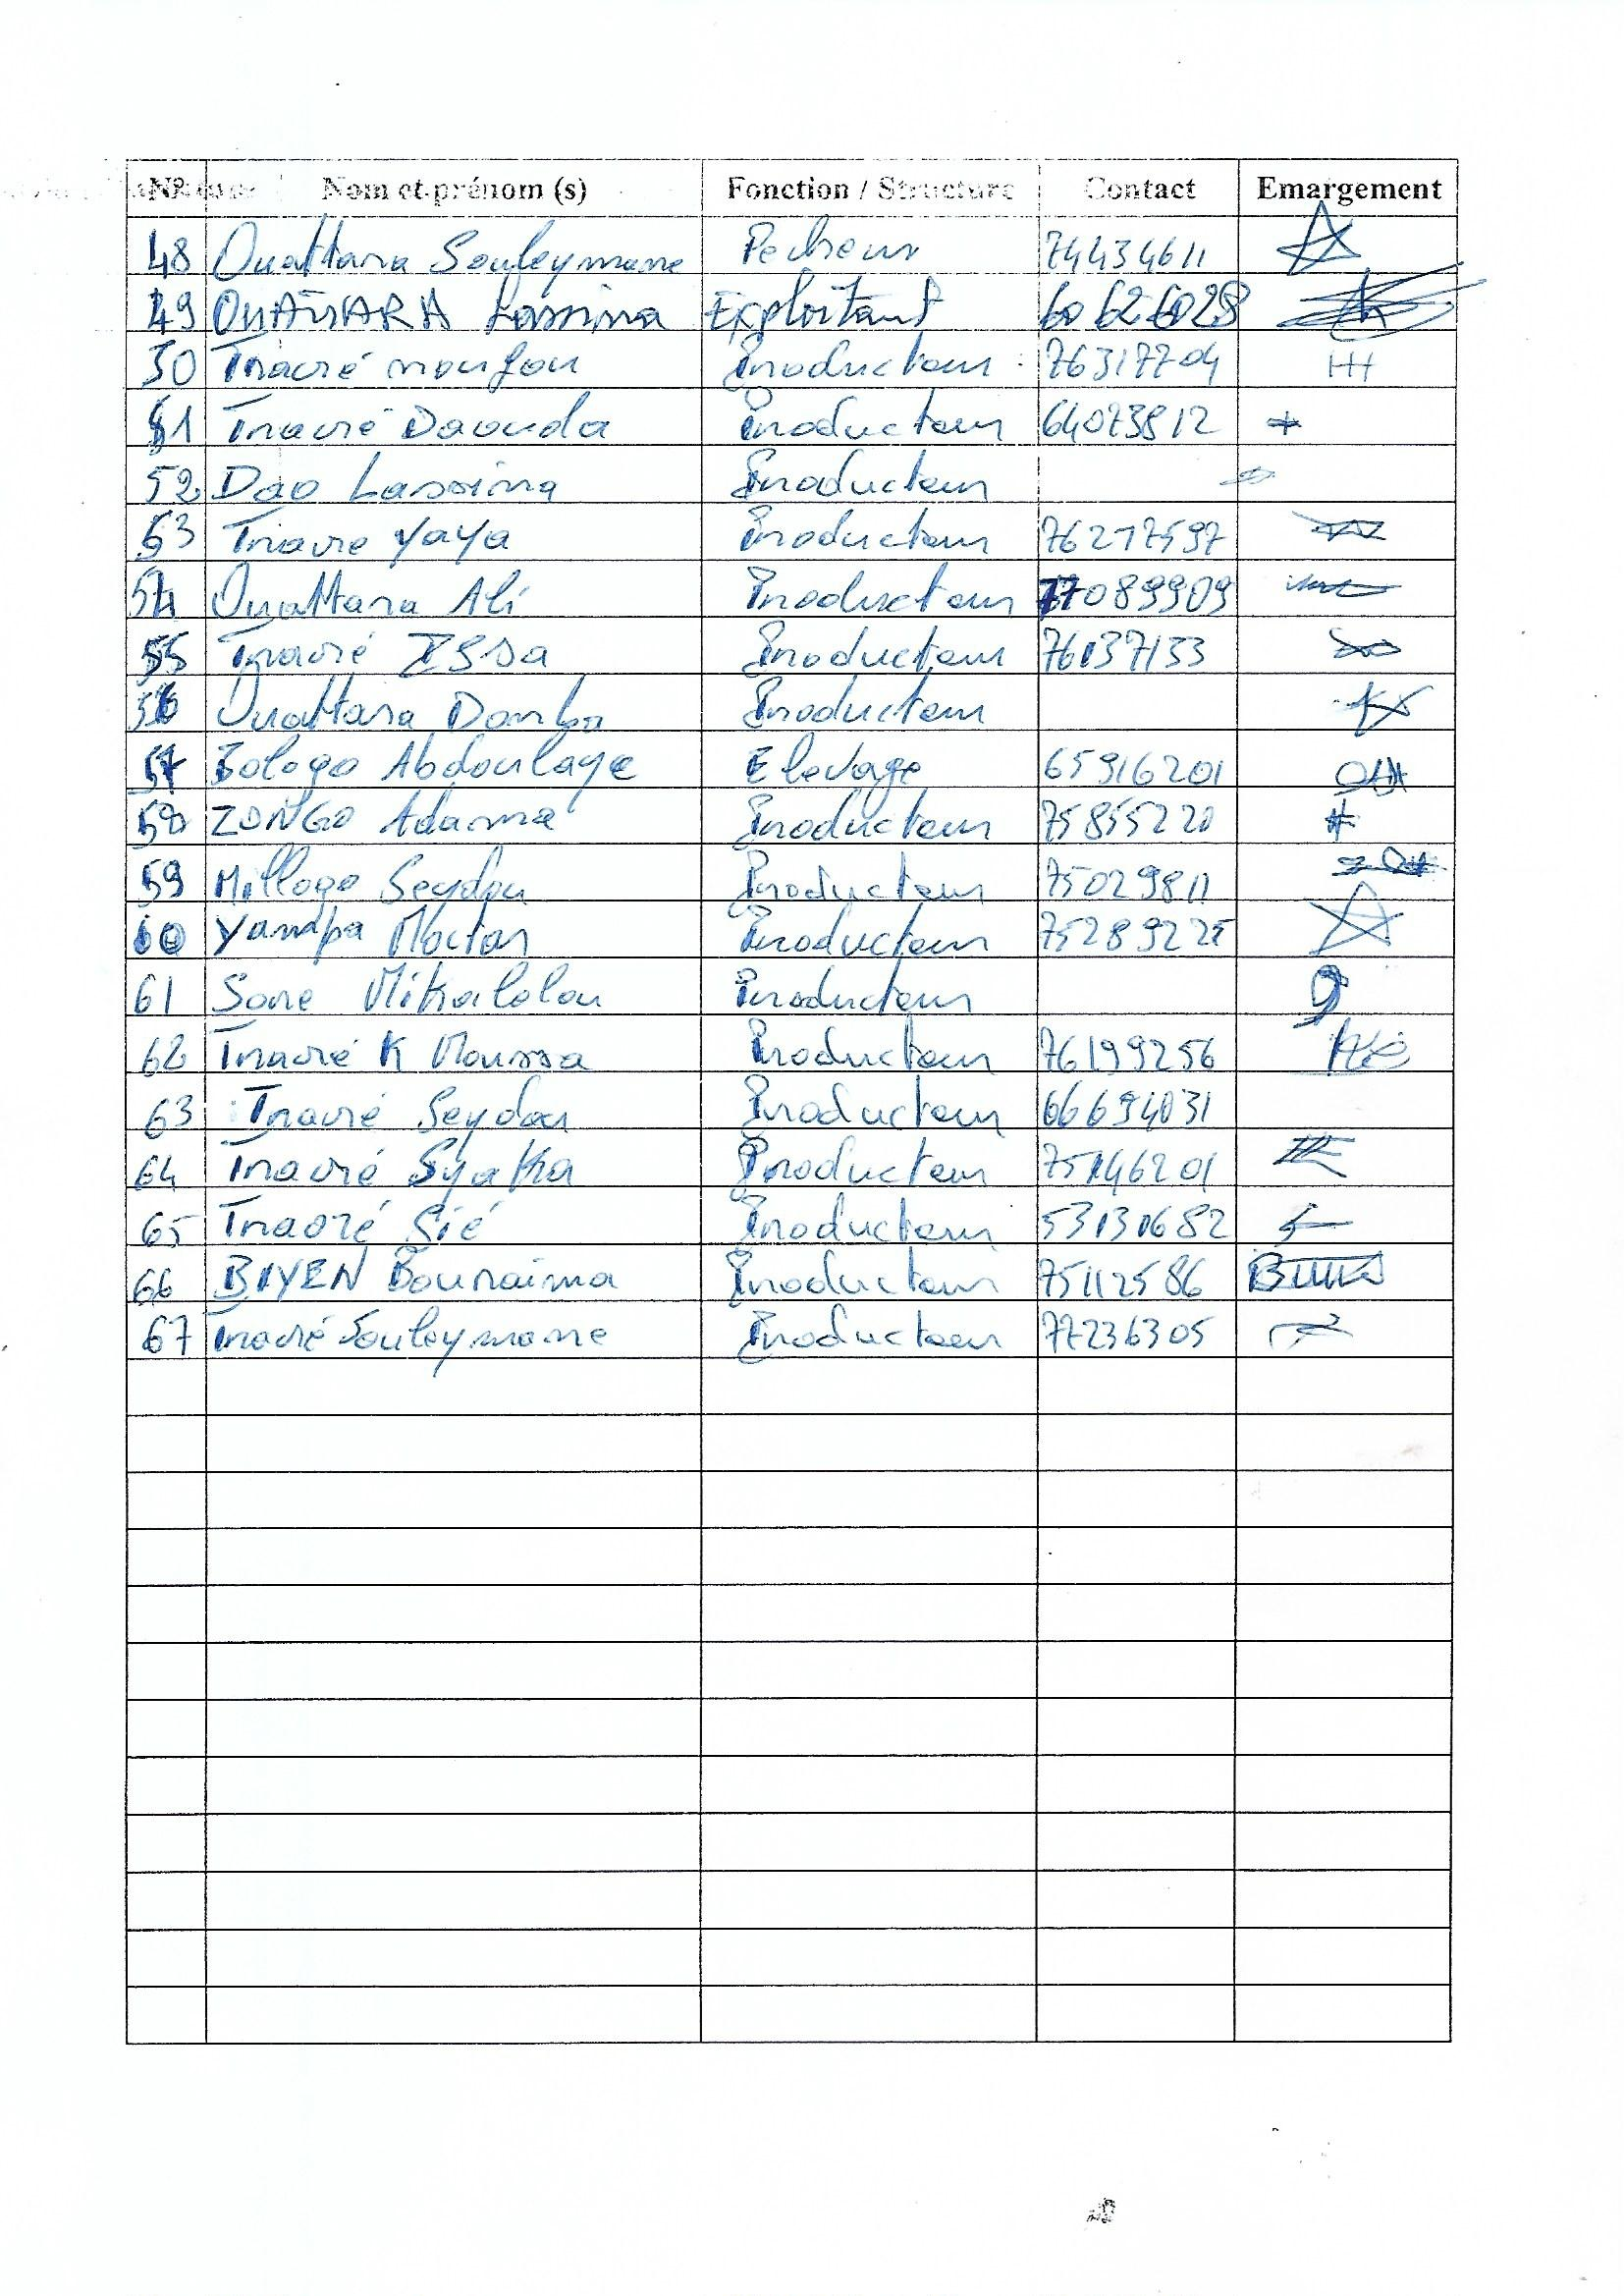 N° Nom et prénom (s) Fonction / Structure Contact Emargement
48 Ouattara Souleymane Pecheur 74434611
49 OUATTARA Lassina Exploitant 60626028
50 Traoré moufou Producteur 76317704
51 Traoré Daouda Producteur 64073812
52 Dao Lassina Producteur
53 Traore YaYa Producteur 76217597
54 Ouattara Ali Producteur 77089909
55 Traoré ISSa Producteur 76137133
56 Ouattara Domba Producteur
57 Bologo Abdoulaye Elevage 65916201
58 ZONGO Adama Producteur 75855220
59 Millogo Seydou Producteur 75029811
60 Yampa Moctar Producteur 75289225
61 Sore Producteur
62 Traoré K Moussa Producteur 76199256
63 Traoré Seydou Producteur 66694031
64 Traoré Syaka Producteur 75146201
65 Traoré Sié Producteur 53130682
66 BIYEN Bouraima Producteur 75112586
67 Traoré Souleymane Producteur 77236305